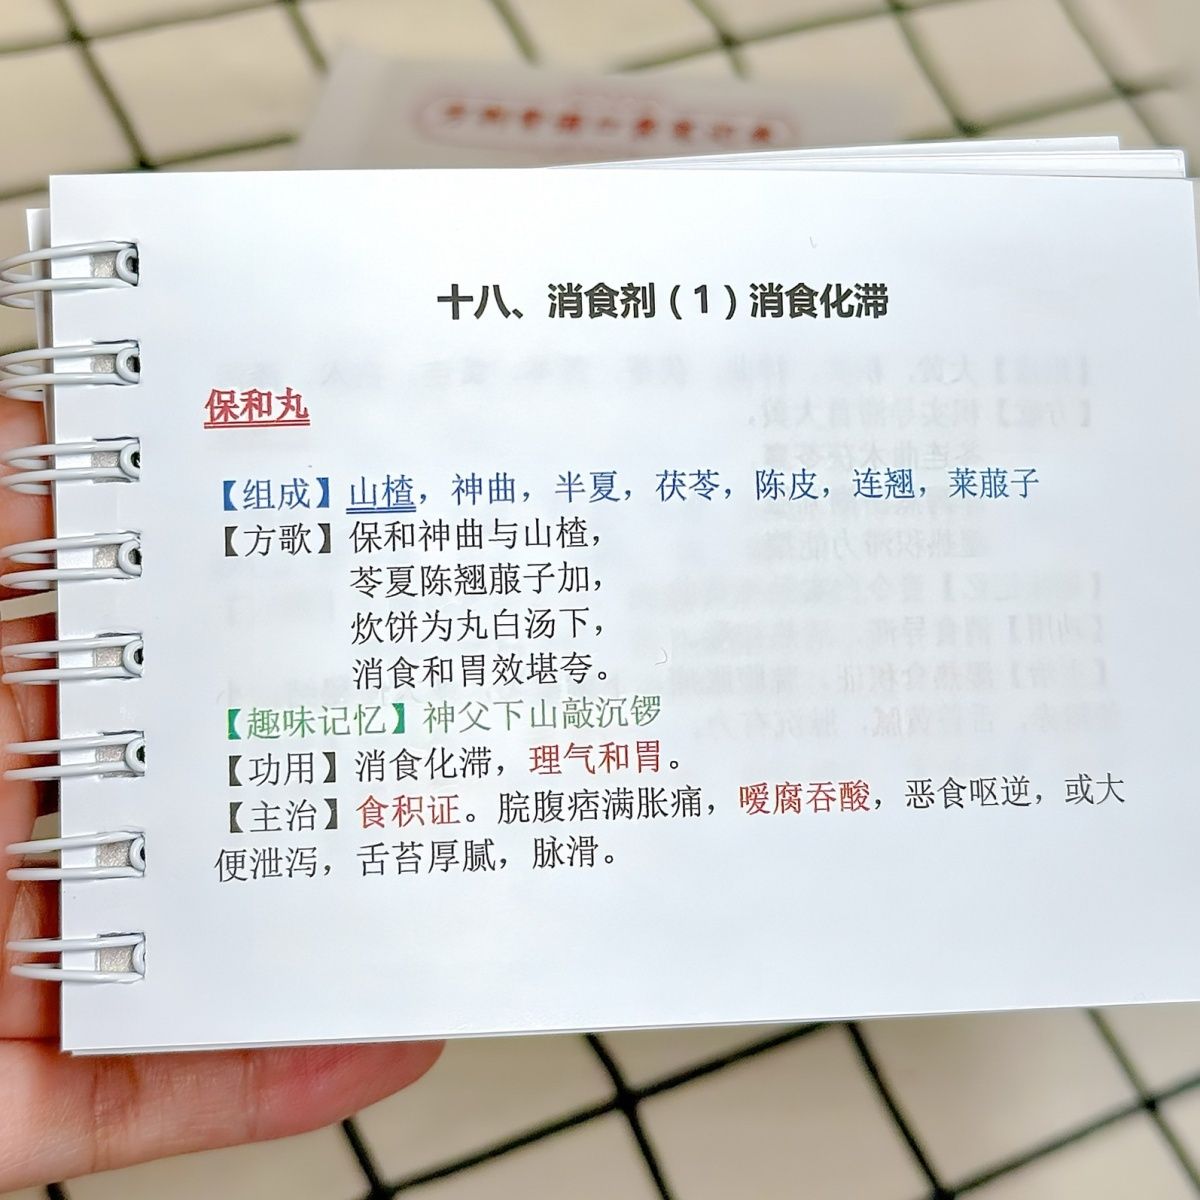 十八、消食剂（1）消食化滞
保和丸
【组成】山楂，神曲，半夏，茯苓，陈皮，连翘，莱菔子
【方歌】保和神曲与山楂，
苓夏陈翘菔子加，
炊饼为丸白汤下，
消食和胃效堪夸。
【趣味记忆】神父下山敲沉锣
【功用】消食化滞，理气和胃。
【主治】食积证。脘腹痞满胀痛，嗳腐吞酸，恶食呕逆，或大
便泄泻，舌苔厚腻，脉滑。